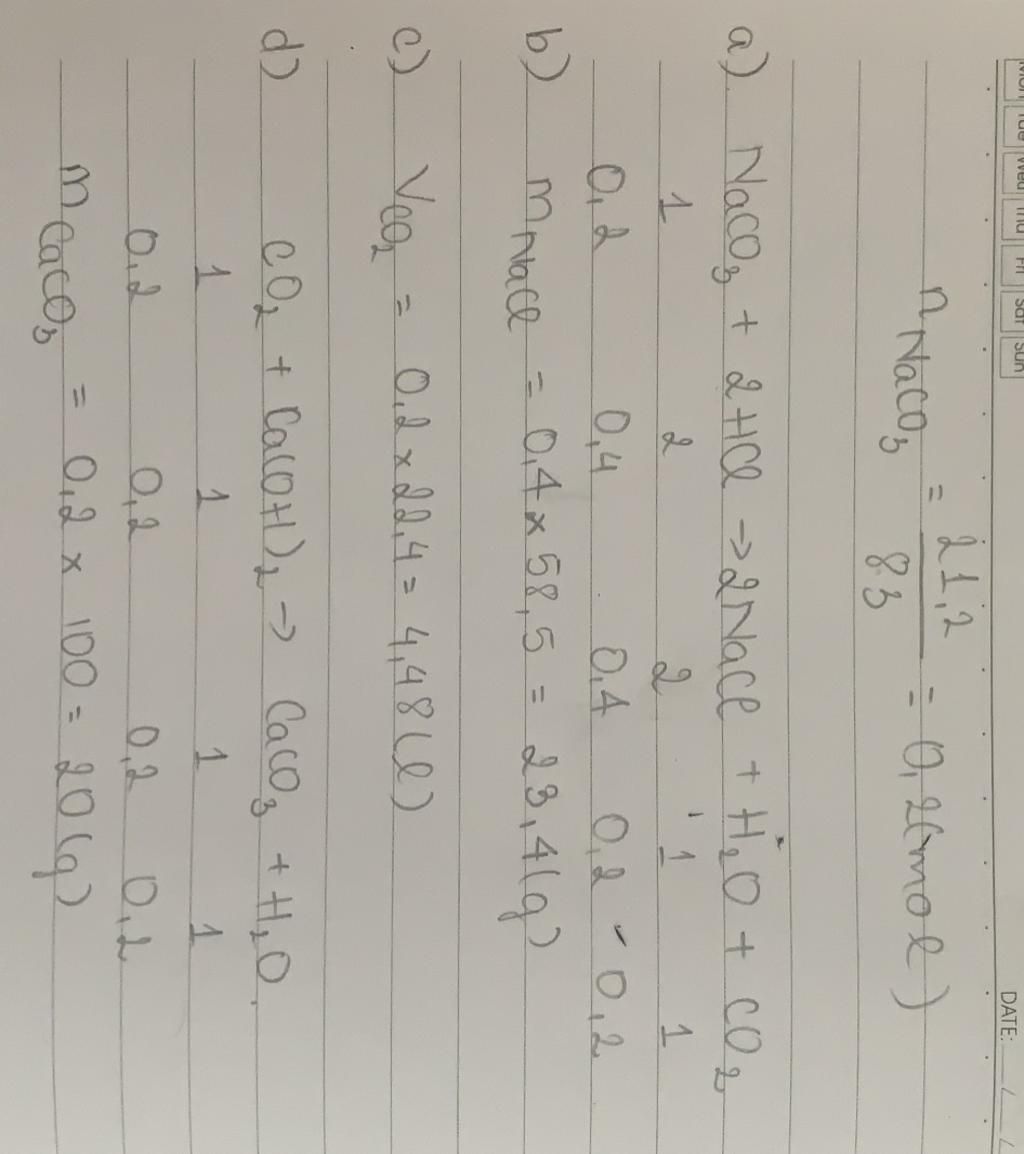 Mon Tue Wed Thu Fri Sat Sun DATE: / /
n NaCO₃ = 21,2 / 83 = 0,2(mol)
a) NaCO₃ + 2HCl → 2NaCl + H₂O + CO₂
1 2 2 1 1
0,2 0,4 0,4 0,2 - 0,2
b) m NaCl = 0,4 × 58,5 = 23,4(g)
c) V CO₂ = 0,2 × 22,4 = 4,48(l)
d) CO₂ + Ca(OH)₂ → CaCO₃ + H₂O
1 1 1 1
0,2 0,2 0,2 0,2
m CaCO₃ = 0,2 × 100 = 20(g)